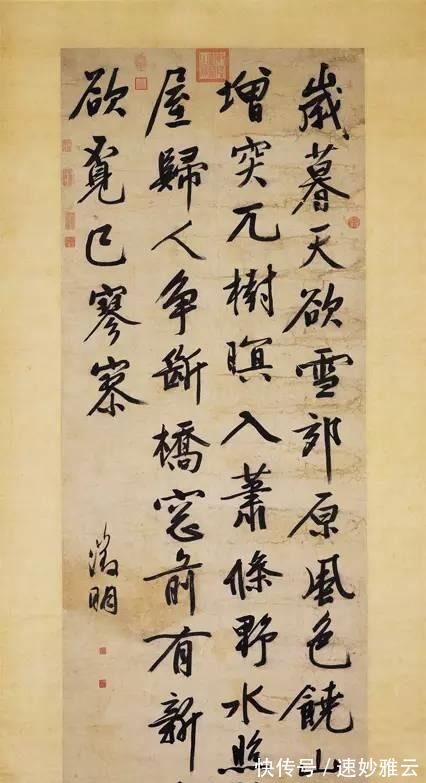 歲暮天欲雪郊原風色饒山
增突兀樹暝入蕭條野水照
屋歸人爭斷橋窗前有新
欲覓已寥寥
徵明
快传号/速妙雅云